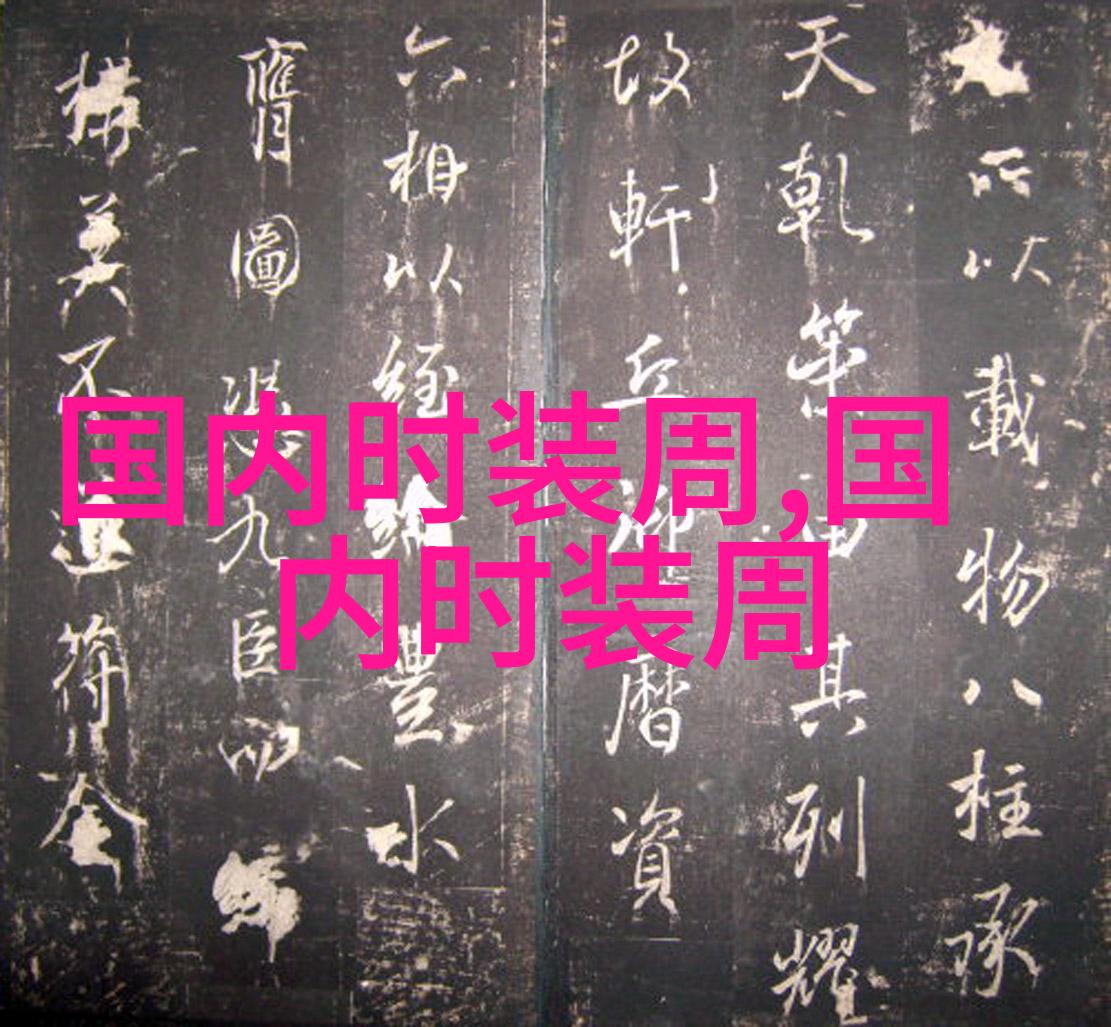 国内时装周,国
内时装周
所以載物八柱承
天乾其列耀
故軒丘曆資
六相以經綸豐水
膺圖九臣
構莫不符